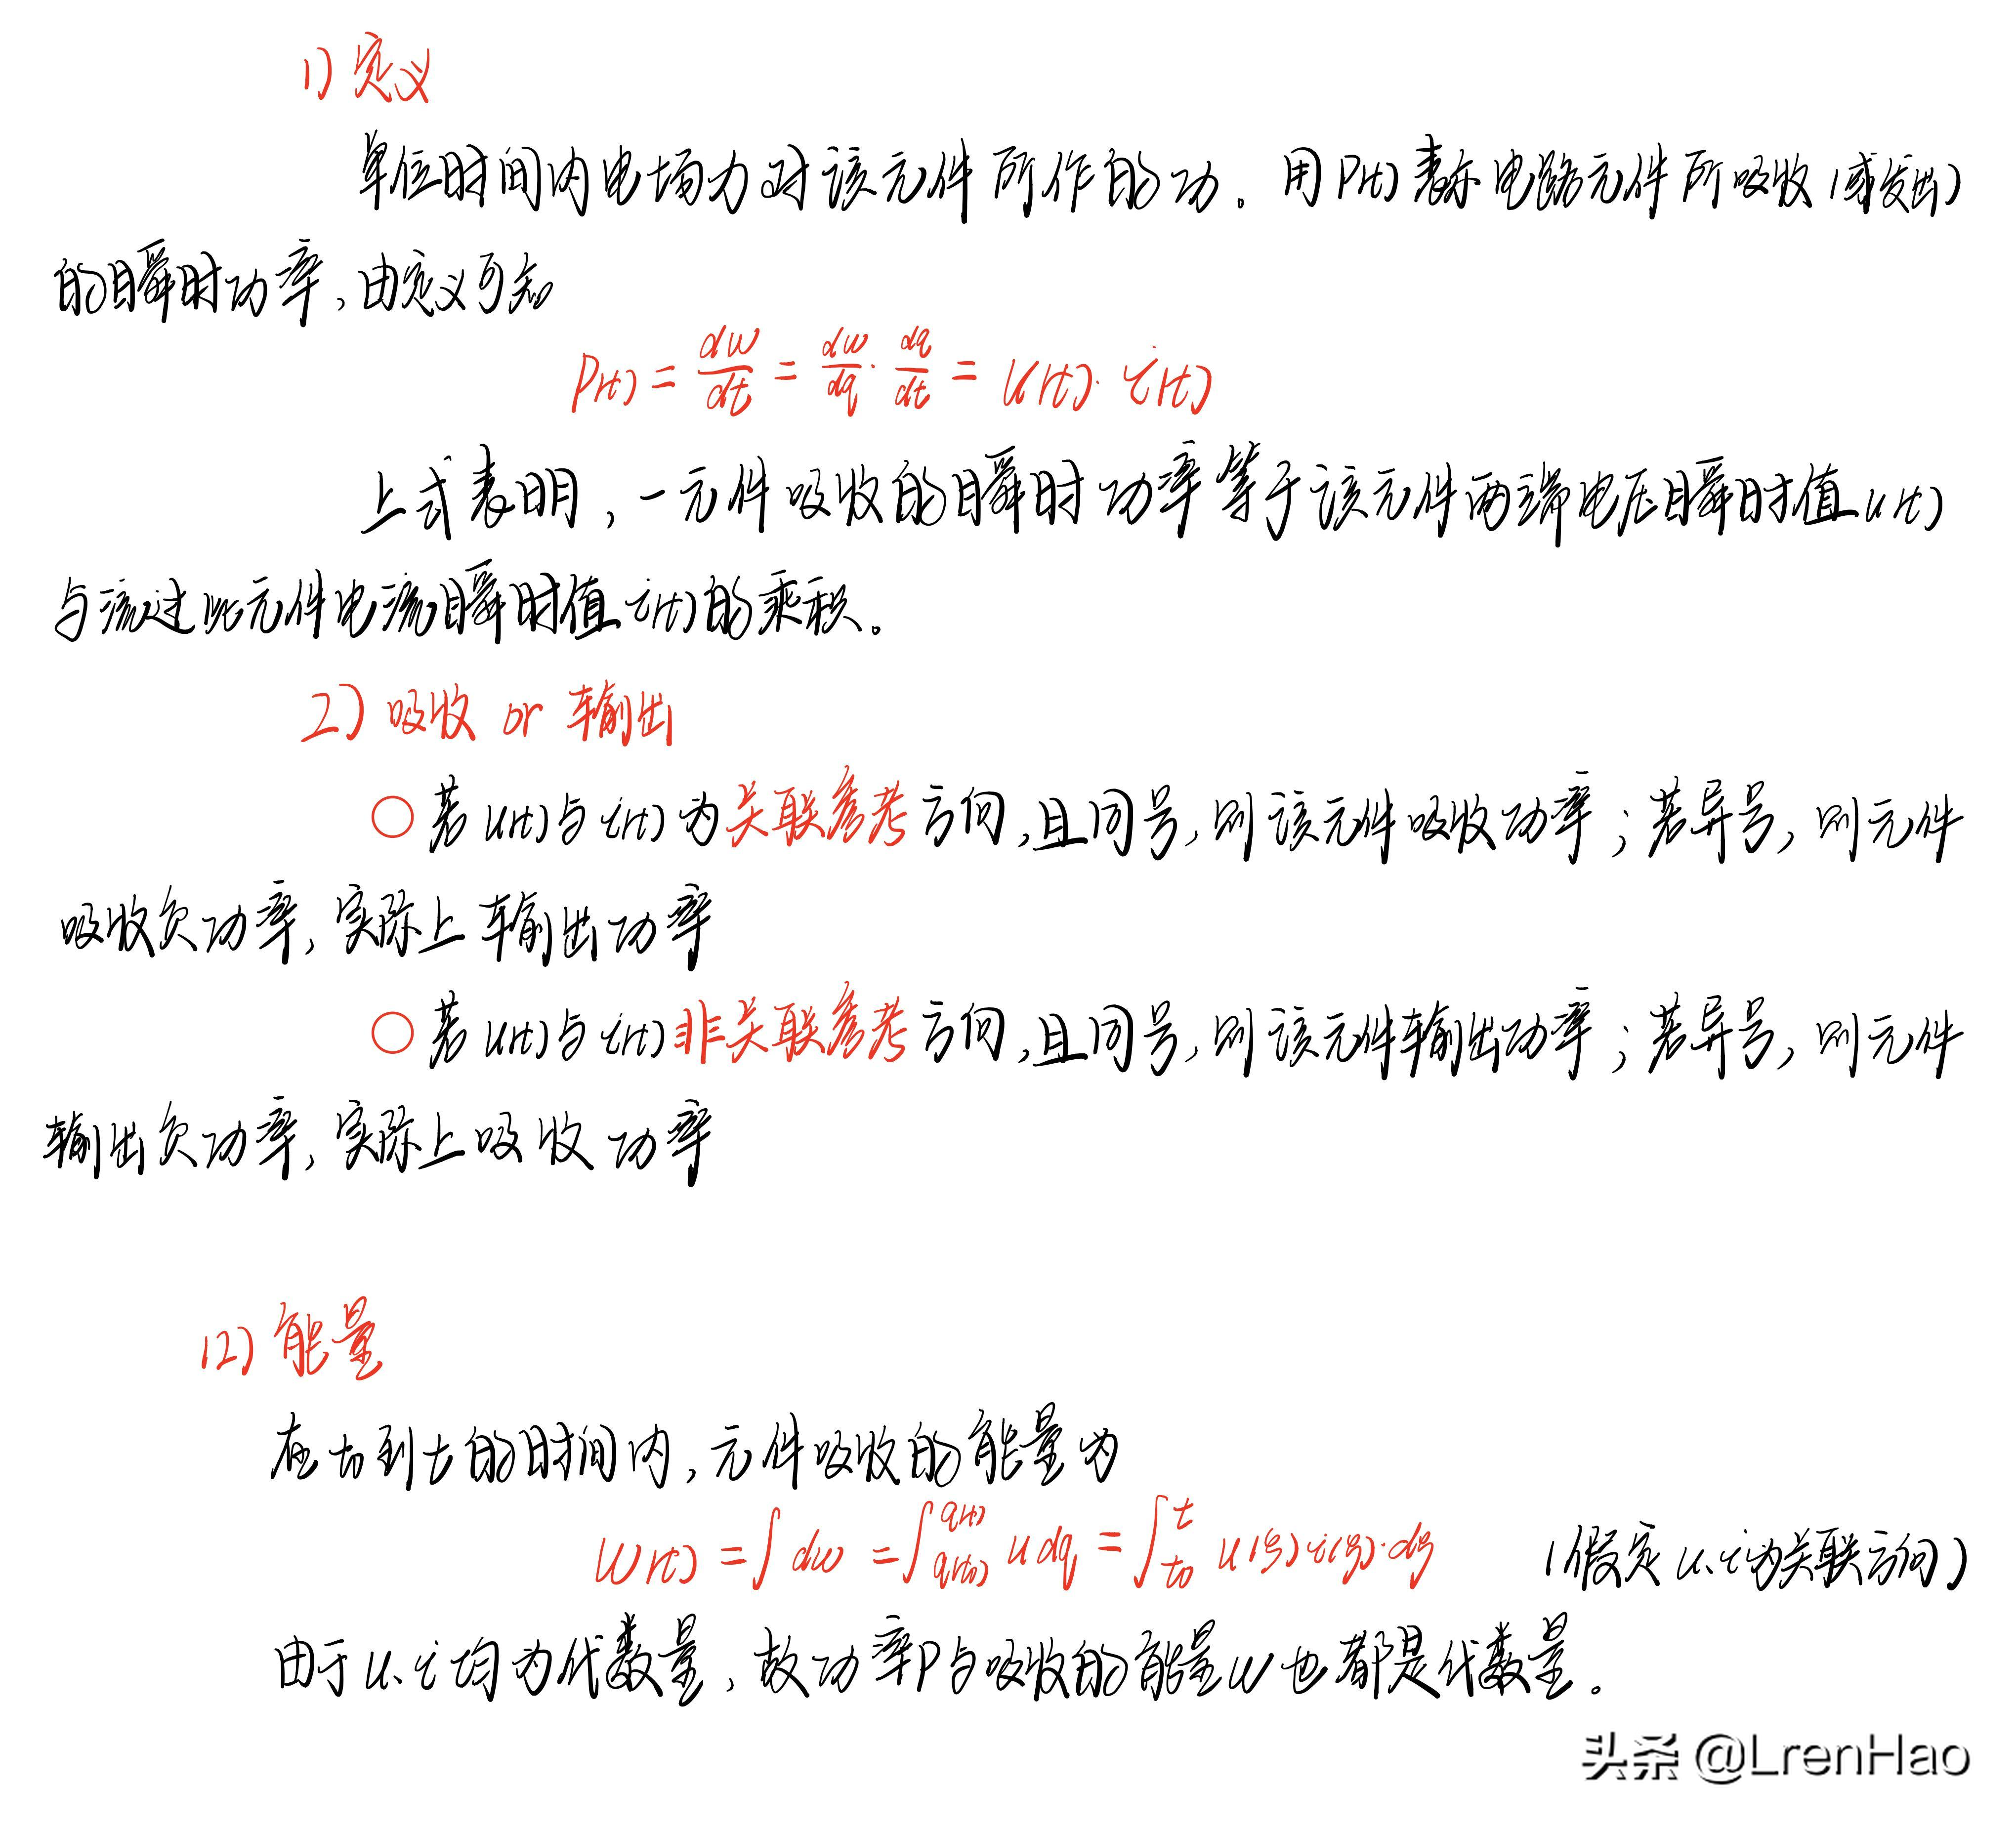 1) 定义
单位时间内电场力对该元件所作的功。用P(t)表示电路元件所吸收(或发出)
的瞬时功率,由定义可知
P(t) = dw/dt = dw/dq · dq/dt = u(t) · i(t)
上式表明,一元件吸收的瞬时功率等于该元件两端电压瞬时值u(t)
与流过此元件电流瞬时值i(t)的乘积。
2) 吸收 or 输出
○ 若u(t)与i(t)为关联参考方向,且同号,则该元件吸收功率;若异号,则元件
吸收负功率,实际上输出功率
○ 若u(t)与i(t)非关联参考方向,且同号,则该元件输出功率;若异号,则元件
输出负功率,实际上吸收功率
(2) 能量
在t₀到t的时间内,元件吸收的能量为
W(t) = ∫dw = ∫_{q(t₀)}^{q(t)} u dq = ∫_{t₀}^{t} u(ξ) i(ξ) · dξ (假定u、i为关联方向)
由于u、i均为代数量,故功率P与吸收的能量W也都是代数量。
头条 @LrenHao